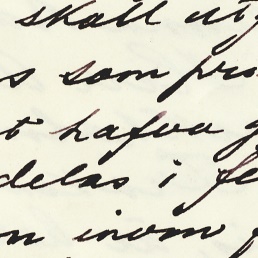 skall utg
s som pro
t hafva g
delas i fe
n inom f